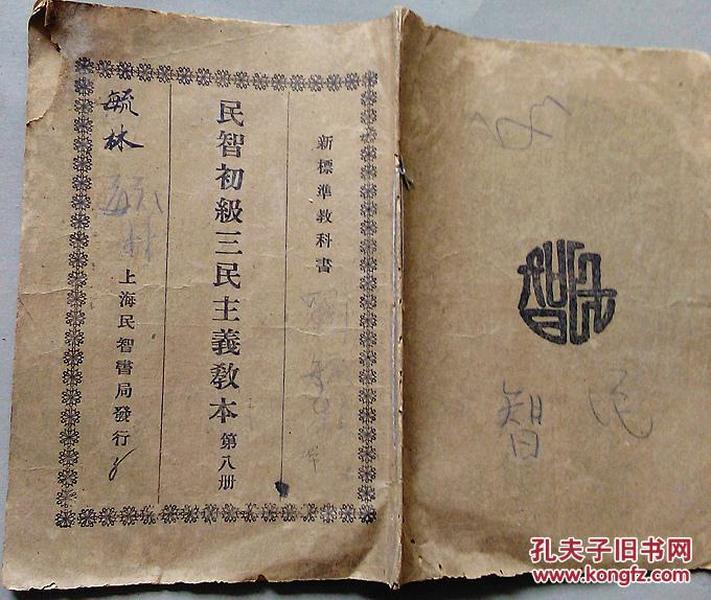 新標準教科書
民智初級三民主義教本 第八册
上海民智書局發行
毓林
毓林
民智
智民
孔夫子旧书网
www.kongfz.com